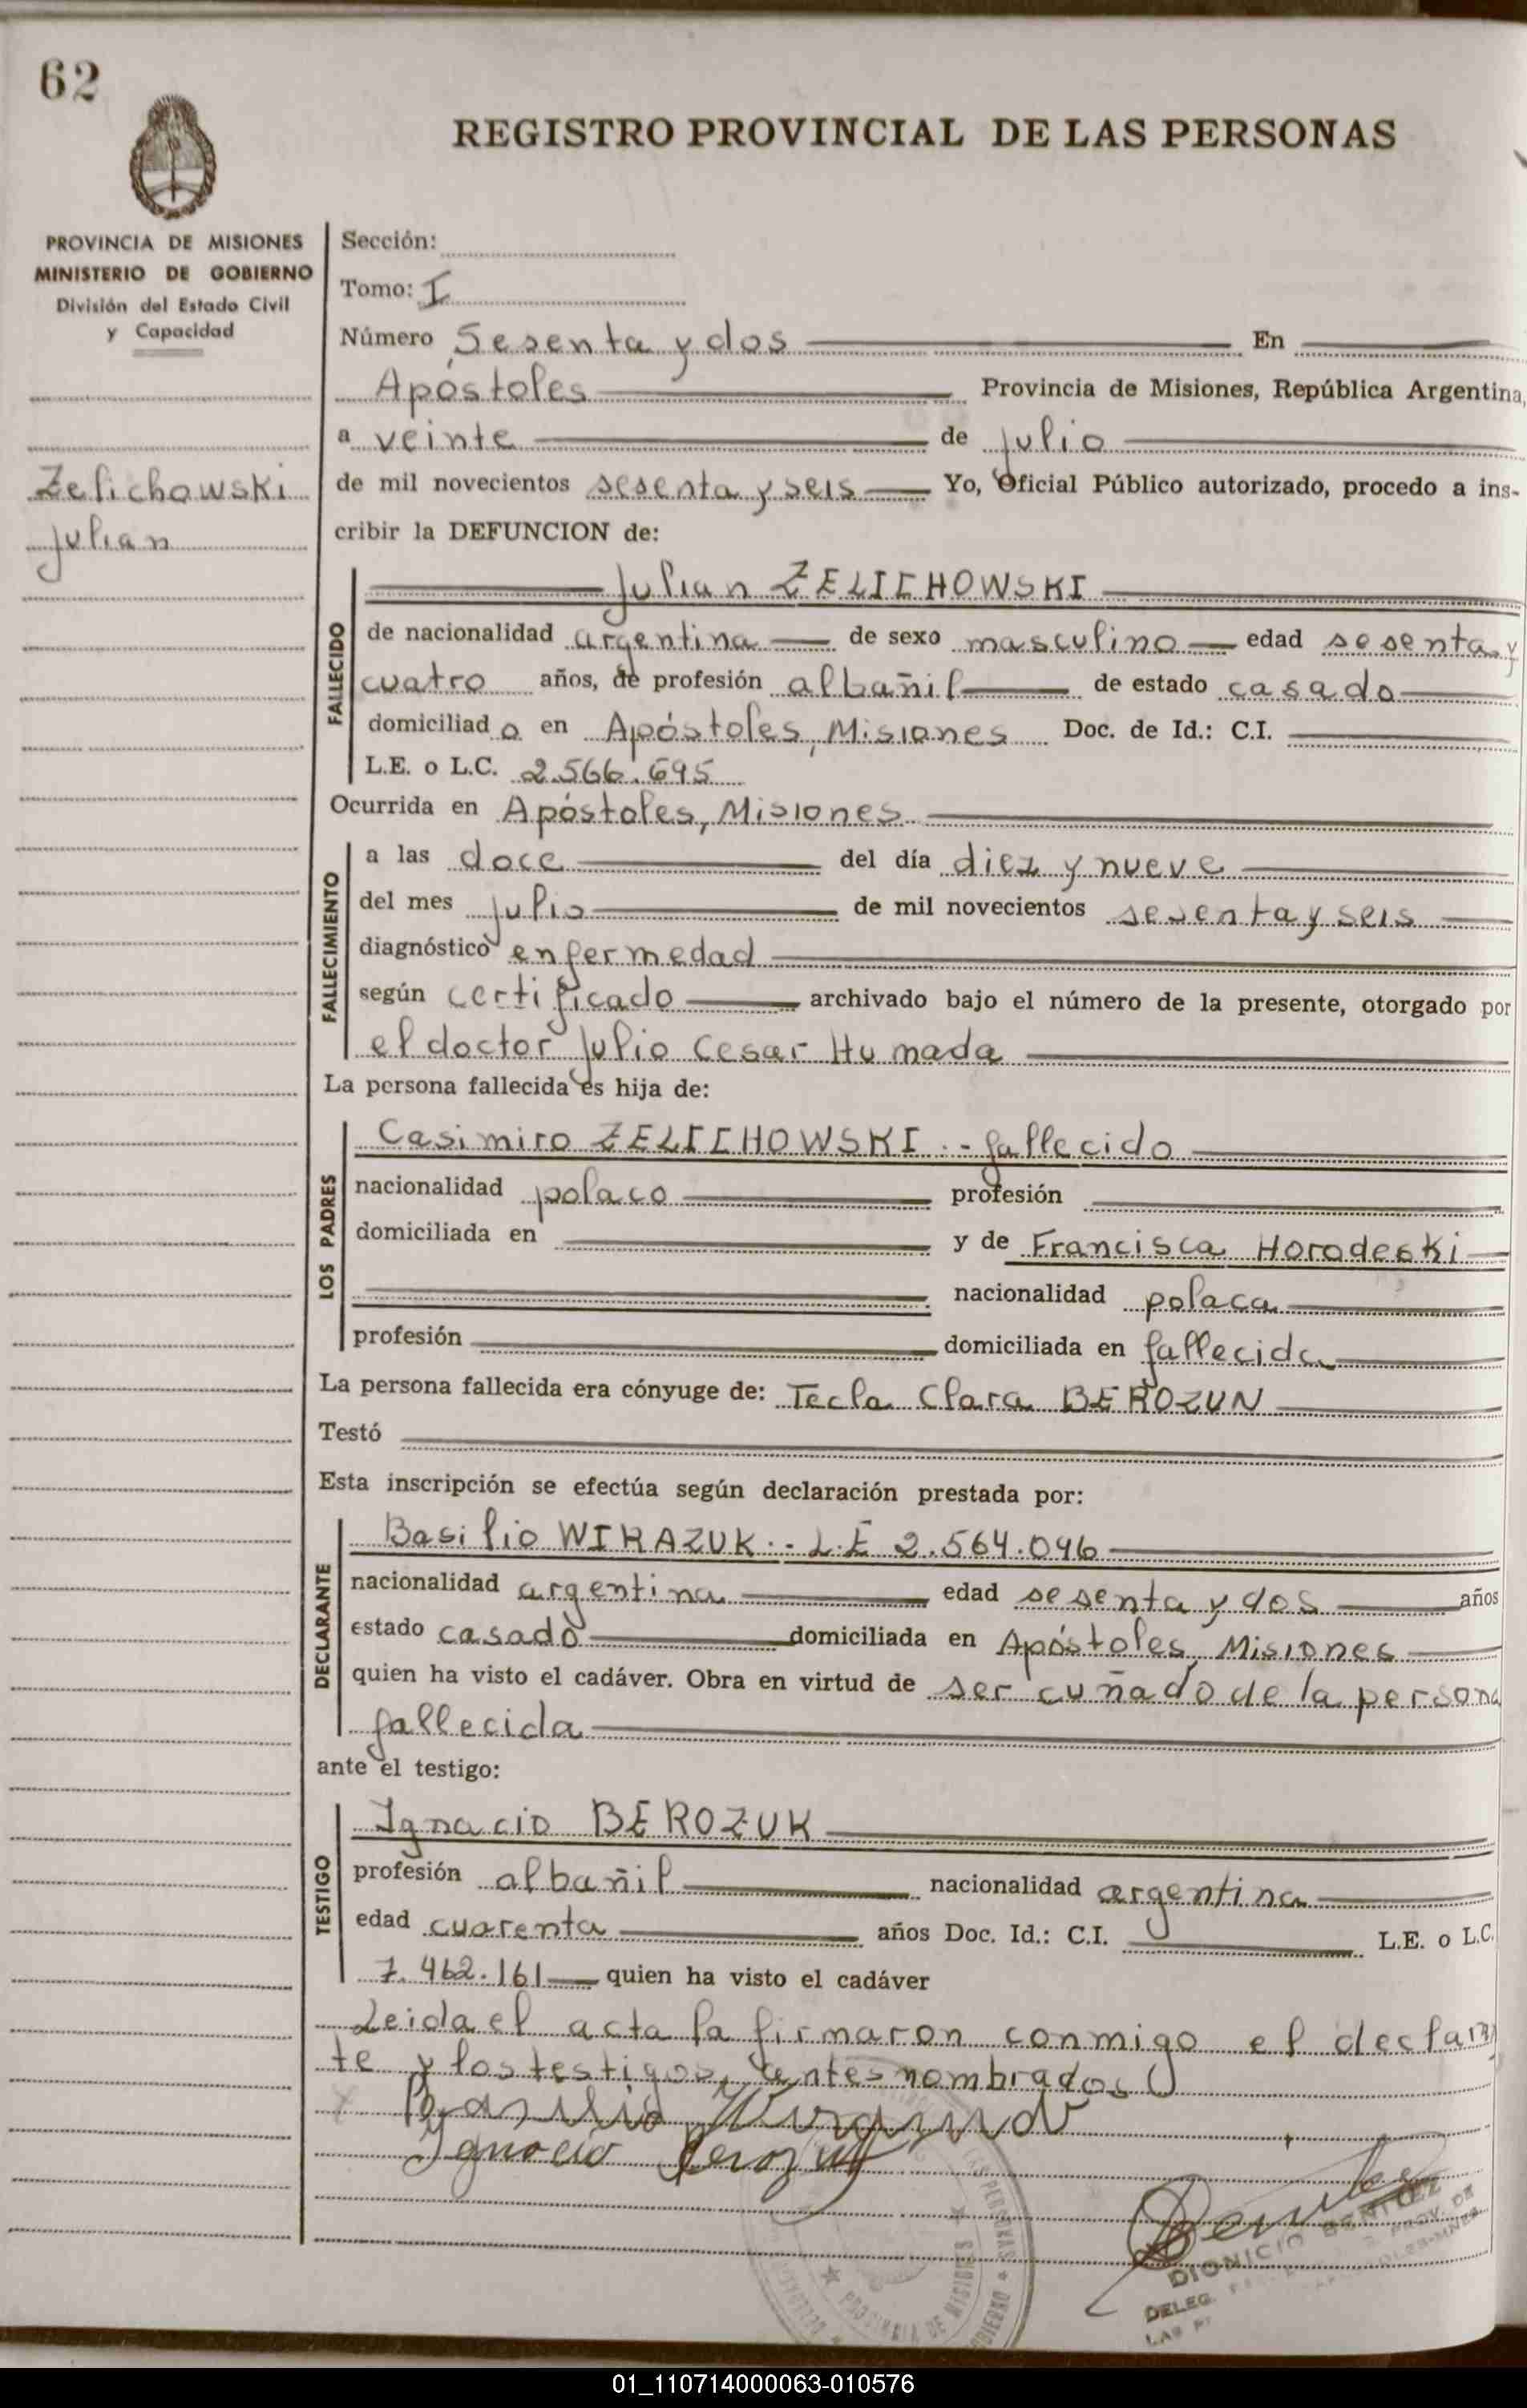 62
REGISTRO PROVINCIAL DE LAS PERSONAS
PROVINCIA DE MISIONES
MINISTERIO DE GOBIERNO
División del Estado Civil
y Capacidad
Zelichowski
Julian
Sección:
Tomo: I
Número Sesenta y dos En
Apóstoles Provincia de Misiones, República Argentina,
a veinte de julio
de mil novecientos sesenta y seis Yo, Oficial Público autorizado, procedo a ins-
cribir la DEFUNCION de:
FALLECIDO
Julian ZELICHOWSKI
de nacionalidad argentina de sexo masculino edad sesenta y
cuatro años, de profesión albañil de estado casado
domiciliad o en Apóstoles, Misiones Doc. de Id.: C.I.
L.E. o L.C. 2.566.695
Ocurrida en Apóstoles, Misiones
FALLECIMIENTO
a las doce del día diez y nueve
del mes julio de mil novecientos sesenta y seis
diagnóstico enfermedad
según certificado archivado bajo el número de la presente, otorgado por
el doctor Julio Cesar Humada
La persona fallecida es hija de:
LOS PADRES
Casimiro ZELICHOWSKI.- fallecido
nacionalidad polaco profesión
domiciliada en y de Francisca Horodeski
nacionalidad polaca
profesión domiciliada en fallecida
La persona fallecida era cónyuge de: Tecla Clara BEROZUN
Testó
Esta inscripción se efectúa según declaración prestada por:
DECLARANTE
Basilio WIRAZUK.- L.E 2.564.096
nacionalidad argentina edad sesenta y dos años
estado casado domiciliada en Apóstoles, Misiones
quien ha visto el cadáver. Obra en virtud de ser cuñado de la persona
fallecida
ante el testigo:
TESTIGO
Ignacio BEROZUK
profesión albañil nacionalidad argentina
edad cuarenta años Doc. Id.: C.I. L.E. o L.C.
7.462.161 quien ha visto el cadáver
Leida el acta la firmaron conmigo el declaran
te y los testigos, antes nombrados
Basilio
Ignacio Berozuk
Benitez
DIONICIO BENITEZ
DELEG.
PROV. DE
PROVINCIA DE MISIONES
01_110714000063-010576